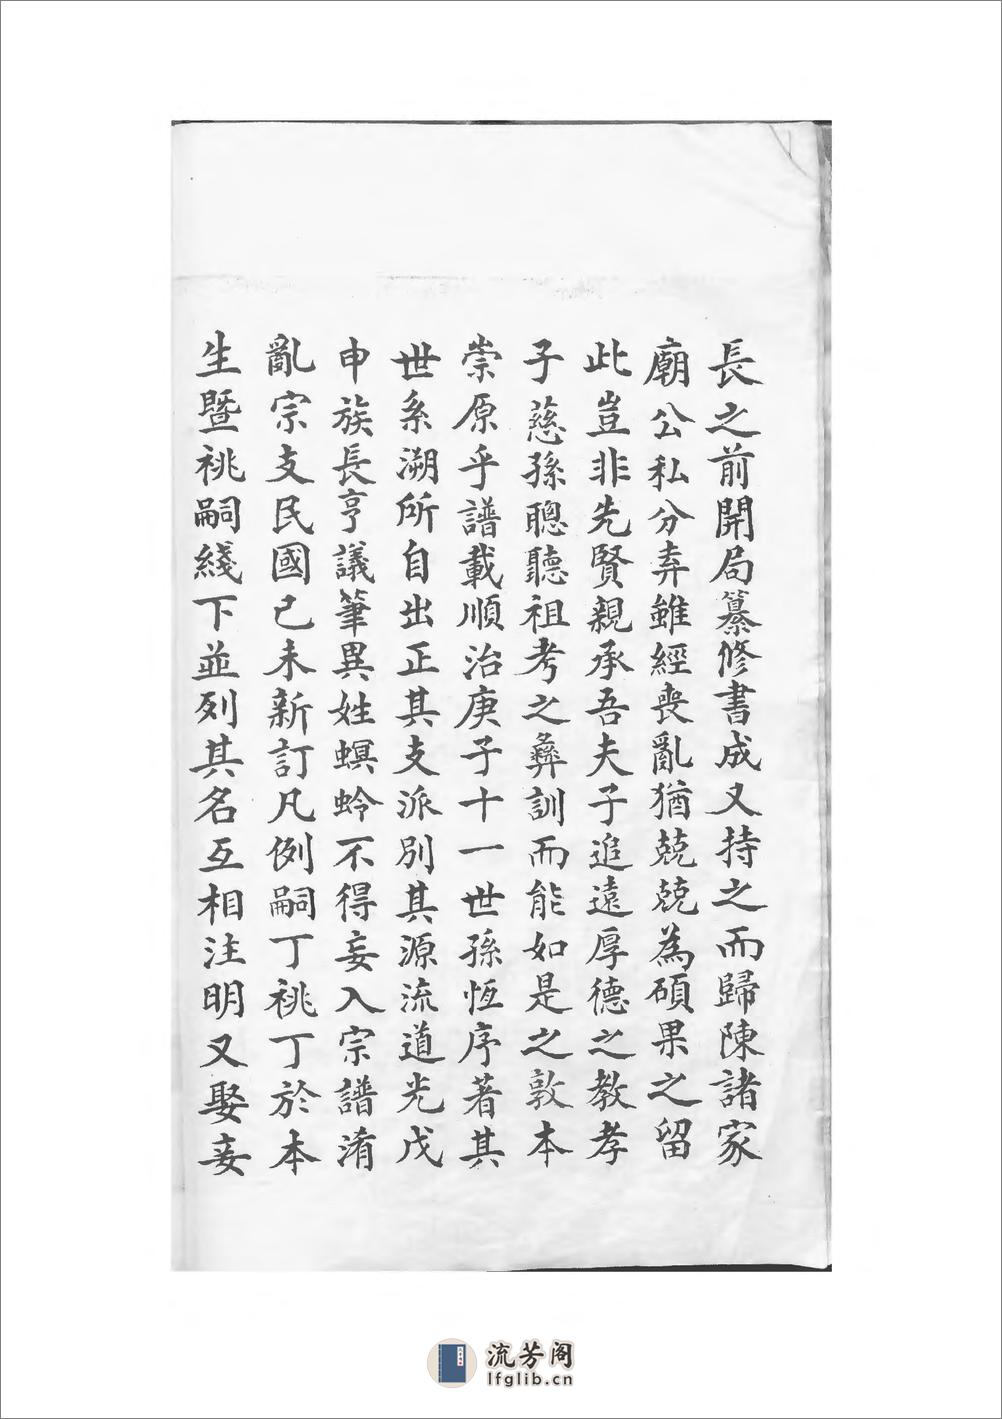 長之前開局纂修書成又持之而歸陳諸家
廟公私分弆雖經喪亂猶兢兢為碩果之留
此豈非先賢親承吾夫子追遠厚德之教孝
子慈孫聰聽祖考之彝訓而能如是之敦本
崇原乎譜載順治庚子十一世孫恆序著其
世系溯所自出正其支派別其源流道光戊
申族長亨議筆異姓螟蛉不得妄入宗譜淆
亂宗支民國己未新訂凡例嗣丁祧丁於本
生暨祧嗣綫下並列其名互相注明又娶妾
流芳阁
lfglib.cn